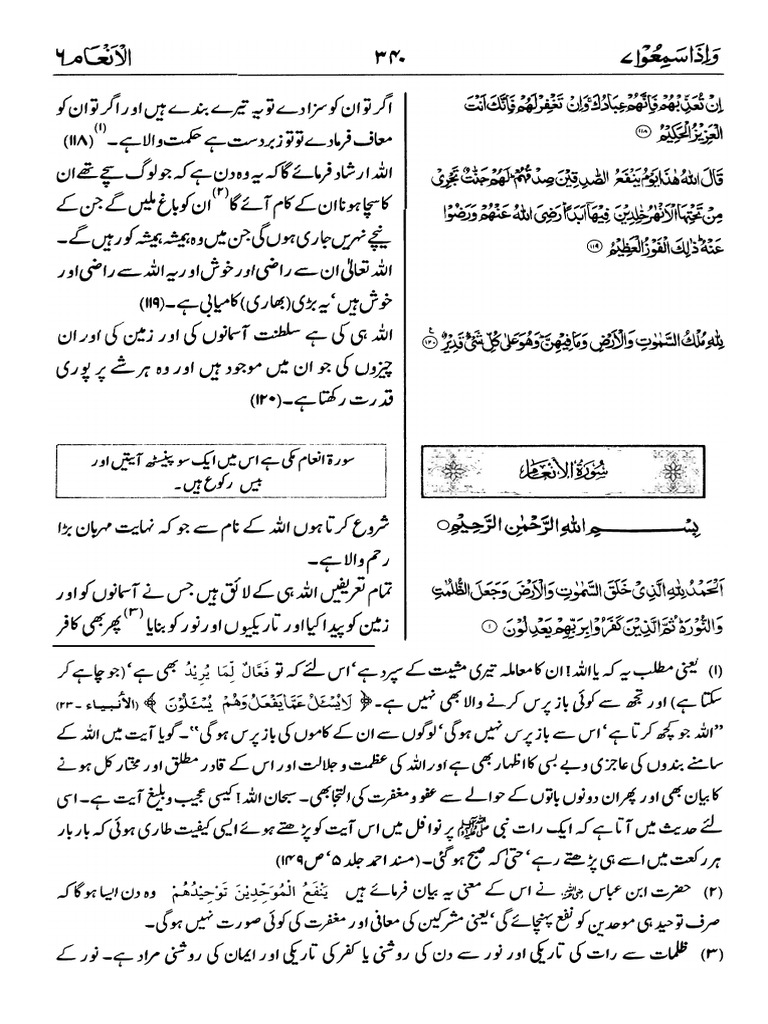 وَاِذَا سَمِعُوْا ٧
٣٤٠
الْاَنْعَام ٦
اِنْ تُعَذِّبْهُمْ فَاِنَّهُمْ عِبَادُكَ وَاِنْ تَغْفِرْلَهُمْ فَاِنَّكَ اَنْتَ
الْعَزِيْزُ الْحَكِيْمُ ١١٨
قَالَ اللهُ هٰذَا يَوْمُ يَنْفَعُ الصّٰدِقِيْنَ صِدْقُهُمْ لَهُمْ جَنّٰتٌ تَجْرِيْ
مِنْ تَحْتِهَا الْاَنْهٰرُ خٰلِدِيْنَ فِيْهَا اَبَدًا رَضِيَ اللهُ عَنْهُمْ وَرَضُوْا
عَنْهُ ذٰلِكَ الْفَوْزُ الْعَظِيْمُ ١١٩
لِلّٰهِ مُلْكُ السَّمٰوٰتِ وَالْاَرْضِ وَمَا فِيْهِنَّ وَهُوَ عَلٰى كُلِّ شَيْءٍ قَدِيْرٌ ١٢٠
سُوْرَةُ الْاَنْعَام
بِسْـــمِ اللهِ الرَّحْمٰنِ الرَّحِيْمِ
اَلْحَمْدُ لِلّٰهِ الَّذِيْ خَلَقَ السَّمٰوٰتِ وَالْاَرْضَ وَجَعَلَ الظُّلُمٰتِ
وَالنُّوْرَ ثُمَّ الَّذِيْنَ كَفَرُوْا بِرَبِّهِمْ يَعْدِلُوْنَ ١
اگر تو ان کو سزا دے تو یہ تیرے بندے ہیں اور اگر تو ان کو
معاف فرما دے تو تو زبردست ہے حکمت والا ہے۔(١) (١١٨)
اللہ ارشاد فرمائے گا کہ یہ وہ دن ہے کہ جو لوگ سچے تھے ان
کا سچا ہونا ان کے کام آئے گا(٢) ان کو باغ ملیں گے جن کے
نیچے نہریں جاری ہوں گی جن میں وہ ہمیشہ ہمیشہ کو رہیں گے۔
اللہ تعالیٰ ان سے راضی اور خوش اور یہ اللہ سے راضی اور
خوش ہیں، یہ بڑی (بھاری) کامیابی ہے۔ (١١٩)
اللہ ہی کی ہے سلطنت آسمانوں کی اور زمین کی اور ان
چیزوں کی جو ان میں موجود ہیں اور وہ ہر شے پر پوری
قدرت رکھتا ہے۔ (١٢٠)
سورۂ انعام مکی ہے اس میں ایک سو پینسٹھ آیتیں اور
بیس رکوع ہیں۔
شروع کرتا ہوں اللہ کے نام سے جو کہ نہایت مہربان بڑا
رحم والا ہے۔
تمام تعریفیں اللہ ہی کے لائق ہیں جس نے آسمانوں کو اور
زمین کو پیدا کیا اور تاریکیوں اور نور کو بنایا(٣) پھر بھی کافر
(١) یعنی مطلب یہ کہ یا اللہ! ان کا معاملہ تیری مشیت کے سپرد ہے، اس لئے کہ تو فَعَّالٌ لِّمَا يُرِيْدُ بھی ہے، (جو چاہے کر
سکتا ہے) اور تجھ سے کوئی باز پرس کرنے والا بھی نہیں ہے۔ ﴿لَا يُسْئَلُ عَمَّا يَفْعَلُ وَهُمْ يُسْئَلُوْنَ﴾ (الأنبياء - ٢٣)
"اللہ جو کچھ کرتا ہے، اس سے باز پرس نہیں ہوگی، لوگوں سے ان کے کاموں کی باز پرس ہوگی"۔ گویا آیت میں اللہ کے
سامنے بندوں کی عاجزی و بے بسی کا اظہار بھی ہے اور اللہ کی عظمت و جلالت اور اس کے قادر مطلق اور مختار کل ہونے
کا بیان بھی اور پھر ان دونوں باتوں کے حوالے سے عفو و مغفرت کی التجا بھی۔ سبحان اللہ! کیسی عجیب و بلیغ آیت ہے۔ اسی
لئے حدیث میں آتا ہے کہ ایک رات نبی ﷺ پر نوافل میں اس آیت کو پڑھتے ہوئے ایسی کیفیت طاری ہوئی کہ بار بار
ہر رکعت میں اسے ہی پڑھتے رہے، حتیٰ کہ صبح ہوگئی۔ (مسند احمد جلد ٥، ص ١٤٩)
(٢) حضرت ابن عباس رضی اللہ عنہما نے اس کے معنی یہ بیان فرمائے ہیں يَنْفَعُ الْمُوَحِّدِيْنَ تَوْحِيْدُهُمْ وہ دن ایسا ہوگا کہ
صرف توحید ہی موحدین کو نفع پہنچائے گی، یعنی مشرکین کی معافی اور مغفرت کی کوئی صورت نہیں ہوگی۔
(٣) ظلمات سے رات کی تاریکی اور نور سے دن کی روشنی یا کفر کی تاریکی اور ایمان کی روشنی مراد ہے۔ نور کے